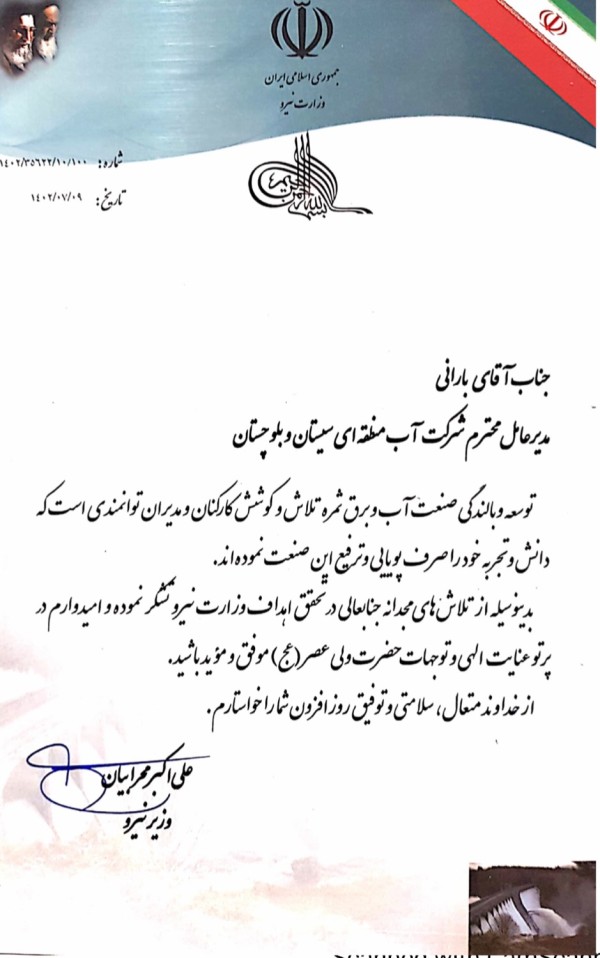 جمهوری اسلامی ایران
وزارت نیرو
بسم الله الرحمن الرحیم
شماره: ۱۴۰۲/۳۵۶۲۲/۱۰/۱۰۰
تاریخ: ۱۴۰۲/۰۷/۰۹
جناب آقای بارانی
مدیرعامل محترم شرکت آب منطقه ای سیستان و بلوچستان
توسعه و بالندگی صنعت آب و برق ثمره تلاش و کوشش کارکنان و مدیران توانمندی است که
دانش و تجربه خود را صرف پویایی و ترفیع این صنعت نموده اند.
بدینوسیله از تلاش های مجدانه جنابعالی در تحقق اهداف وزارت نیرو تشکر نموده و امیدوارم در
پرتو عنایت الهی و توجهات حضرت ولی عصر (عج) موفق و مؤید باشید.
از خداوند متعال، سلامتی و توفیق روزافزون شما را خواستارم.
علی اکبر محرابیان
وزیر نیرو